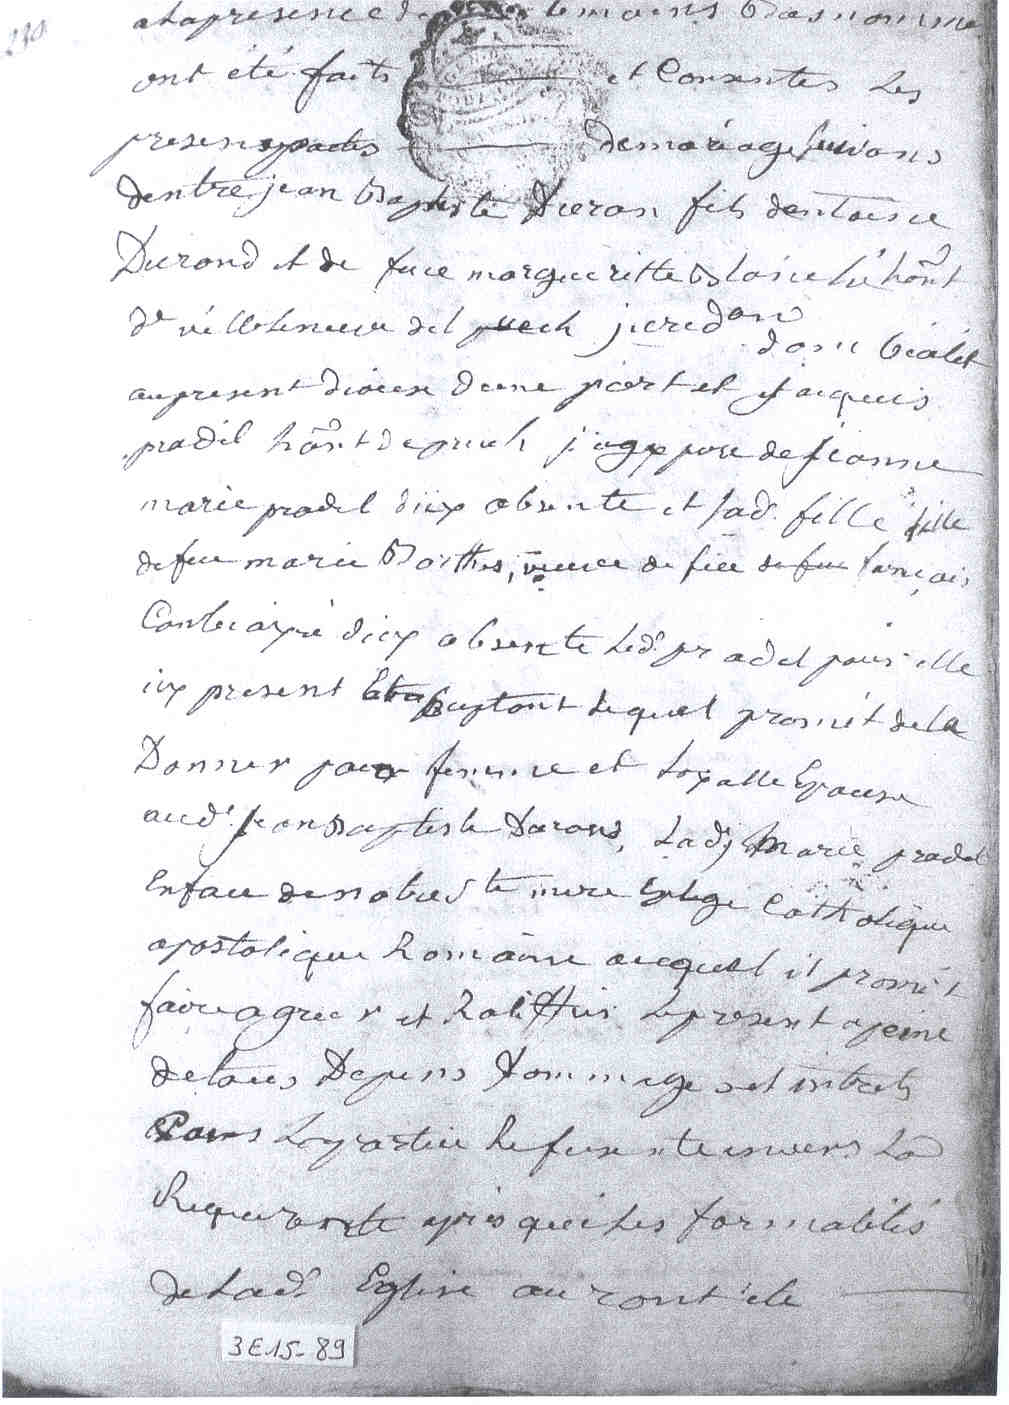 230
a la presence des temoins bas nommes
ont été faits et Consentes Les
presens pactes de mariage suivans
dentre jean Baptiste Duran fils dentoine
Durand et de feue margueritte Blaise hãnt
de villeneuve del puech jurdon
dans
au present dioceze dune part et jacques
pradel hãnt de puech pere de jeanne
marie pradel icy absente et lad. fille fille
de feue marie Barthes, veuve de feu francois
Combi icy absente Led. pradel pour elle
icy present et aceptant lequel promet de la
Donner pour femme et Loyalle Epouse
aud. jean Baptiste Durand, Lad. Marie pradel
En face de notre Ste mere Eglize Catholique
apostolique Romaine auquel il promet
faire agreer et Ratiffier Le present a peine
de tous Depens Dommages et intrets
Pour La partie Refusente envers La
Requerante apres que les formalites
de Lad. Eglise auront ete
3E15-89